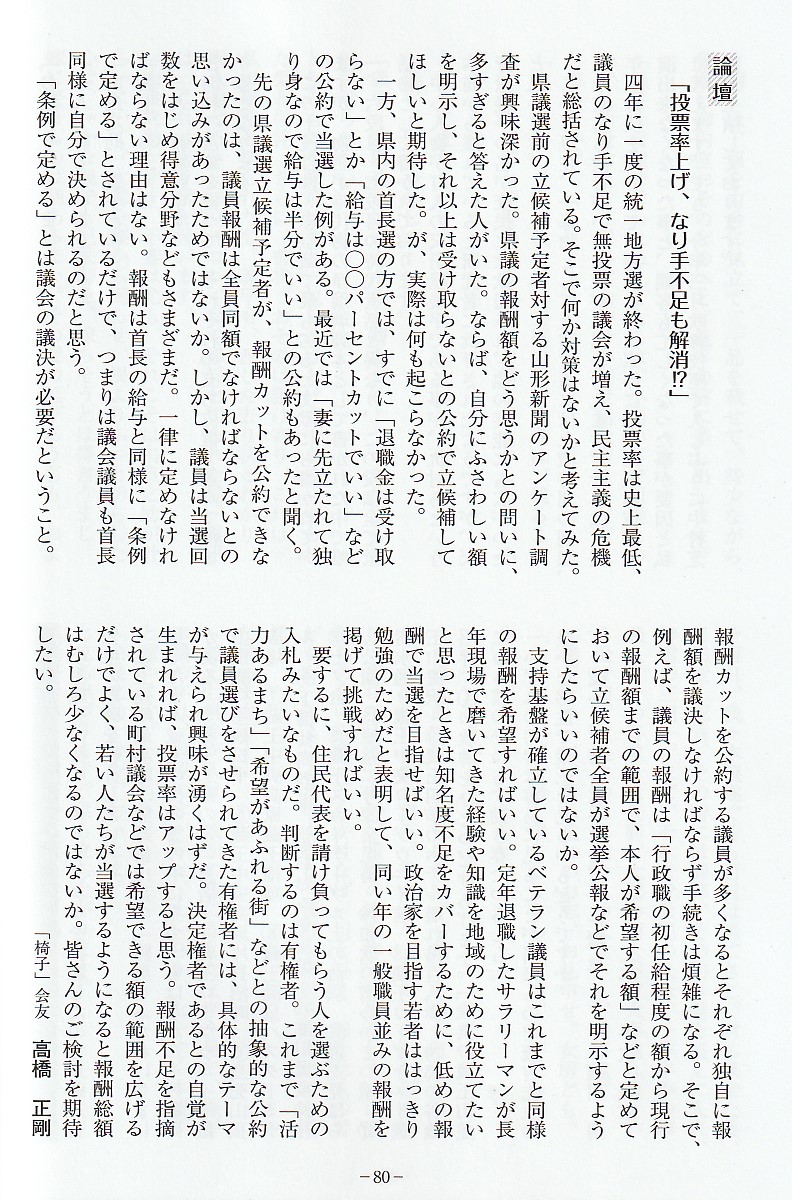 論壇
「投票率上げ、なり手不足も解消!?」
四年に一度の統一地方選が終わった。投票率は史上最低、
議員のなり手不足で無投票の議会が増え、民主主義の危機
だと総括されている。そこで何か対策はないかと考えてみた。
県議選前の立候補予定者対する山形新聞のアンケート調
査が興味深かった。県議の報酬額をどう思うかとの問いに、
多すぎると答えた人がいた。ならば、自分にふさわしい額
を明示し、それ以上は受け取らないとの公約で立候補して
ほしいと期待した。が、実際は何も起こらなかった。
一方、県内の首長選の方では、すでに「退職金は受け取
らない」とか「給与は〇〇パーセントカットでいい」など
の公約で当選した例がある。最近では「妻に先立たれて独
り身なので給与は半分でいい」との公約もあったと聞く。
先の県議選立候補予定者が、報酬カットを公約できな
かったのは、議員報酬は全員同額でなければならないとの
思い込みがあったためではないか。しかし、議員は当選回
数をはじめ得意分野などもさまざまだ。一律に定めなけれ
ばならない理由はない。報酬は首長の給与と同様に「条例
で定める」とされているだけで、つまりは議会議員も首長
同様に自分で決められるのだと思う。
「条例で定める」とは議会の議決が必要だということ。
報酬カットを公約する議員が多くなるとそれぞれ独自に報
酬額を議決しなければならず手続きは煩雑になる。そこで、
例えば、議員の報酬は「行政職の初任給程度の額から現行
の報酬額までの範囲で、本人が希望する額」などと定めて
おいて立候補者全員が選挙公報などでそれを明示するよう
にしたらいいのではないか。
支持基盤が確立しているベテラン議員はこれまでと同様
の報酬を希望すればいい。定年退職したサラリーマンが長
年現場で磨いてきた経験や知識を地域のために役立てたい
と思ったときは知名度不足をカバーするために、低めの報
酬で当選を目指せばいい。政治家を目指す若者ははっきり
勉強のためだと表明して、同い年の一般職員並みの報酬を
掲げて挑戦すればいい。
要するに、住民代表を請け負ってもらう人を選ぶための
入札みたいなものだ。判断するのは有権者。これまで「活
力あるまち」「希望があふれる街」などとの抽象的な公約
で議員選びをさせられてきた有権者には、具体的なテーマ
が与えられ興味が湧くはずだ。決定権者であるとの自覚が
生まれれば、投票率はアップすると思う。報酬不足を指摘
されている町村議会などでは希望できる額の範囲を広げる
だけでよく、若い人たちが当選するようになると報酬総額
はむしろ少なくなるのではないか。皆さんのご検討を期待
したい。
「椅子」会友 高橋 正剛
−80−